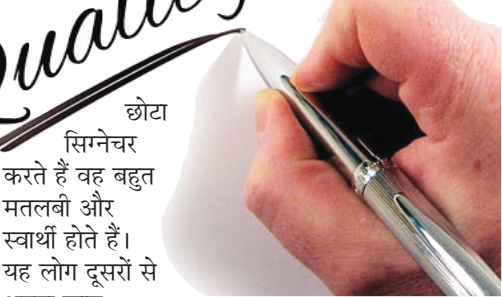 Quality
छोटा
सिग्नेचर
करते हैं वह बहुत
मतलबी और
स्वार्थी होते हैं।
यह लोग दूसरों से